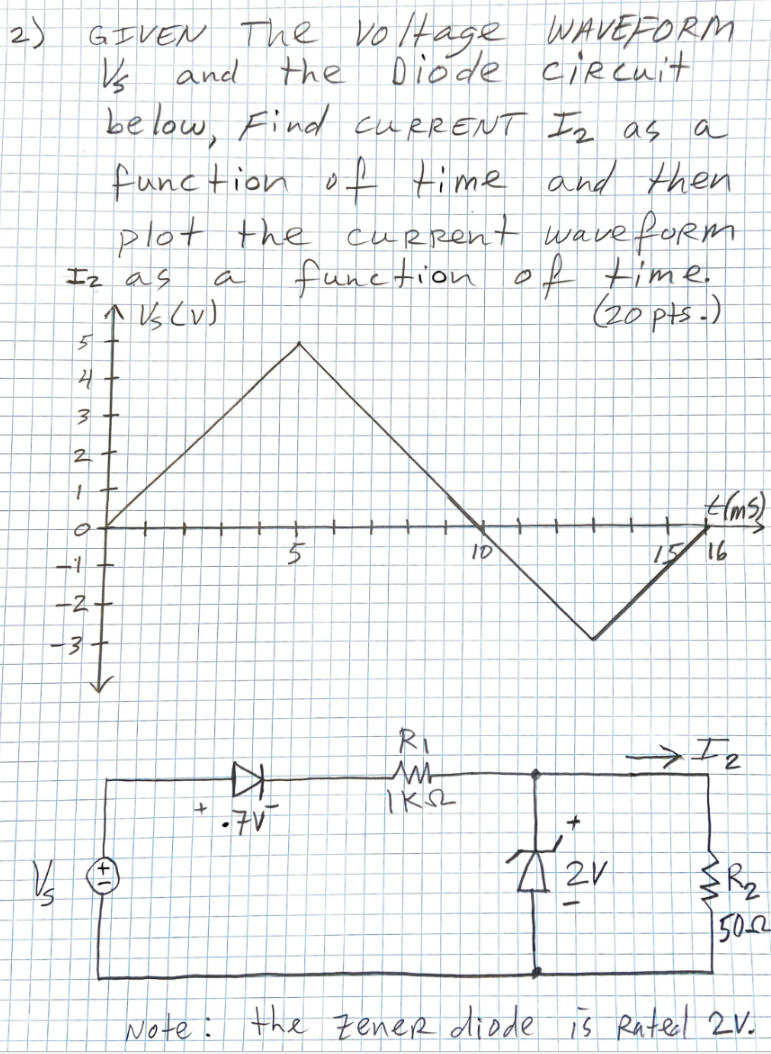 2) GIVEN The Voltage WAVEFORM
Vs and the Diode circuit
below, Find CURRENT I2 as a
function of time and then
plot the current waveform
I2 as a function of time.
(20 pts.)
Vs (V)
5
4
3
2
1
0
-1
-2
-3
5
10
15
16
t(ms)
R1
1KΩ
I2
+ .7V -
+
2V
-
Vs
+
-
R2
50Ω
Note: the zener diode is Rated 2V.